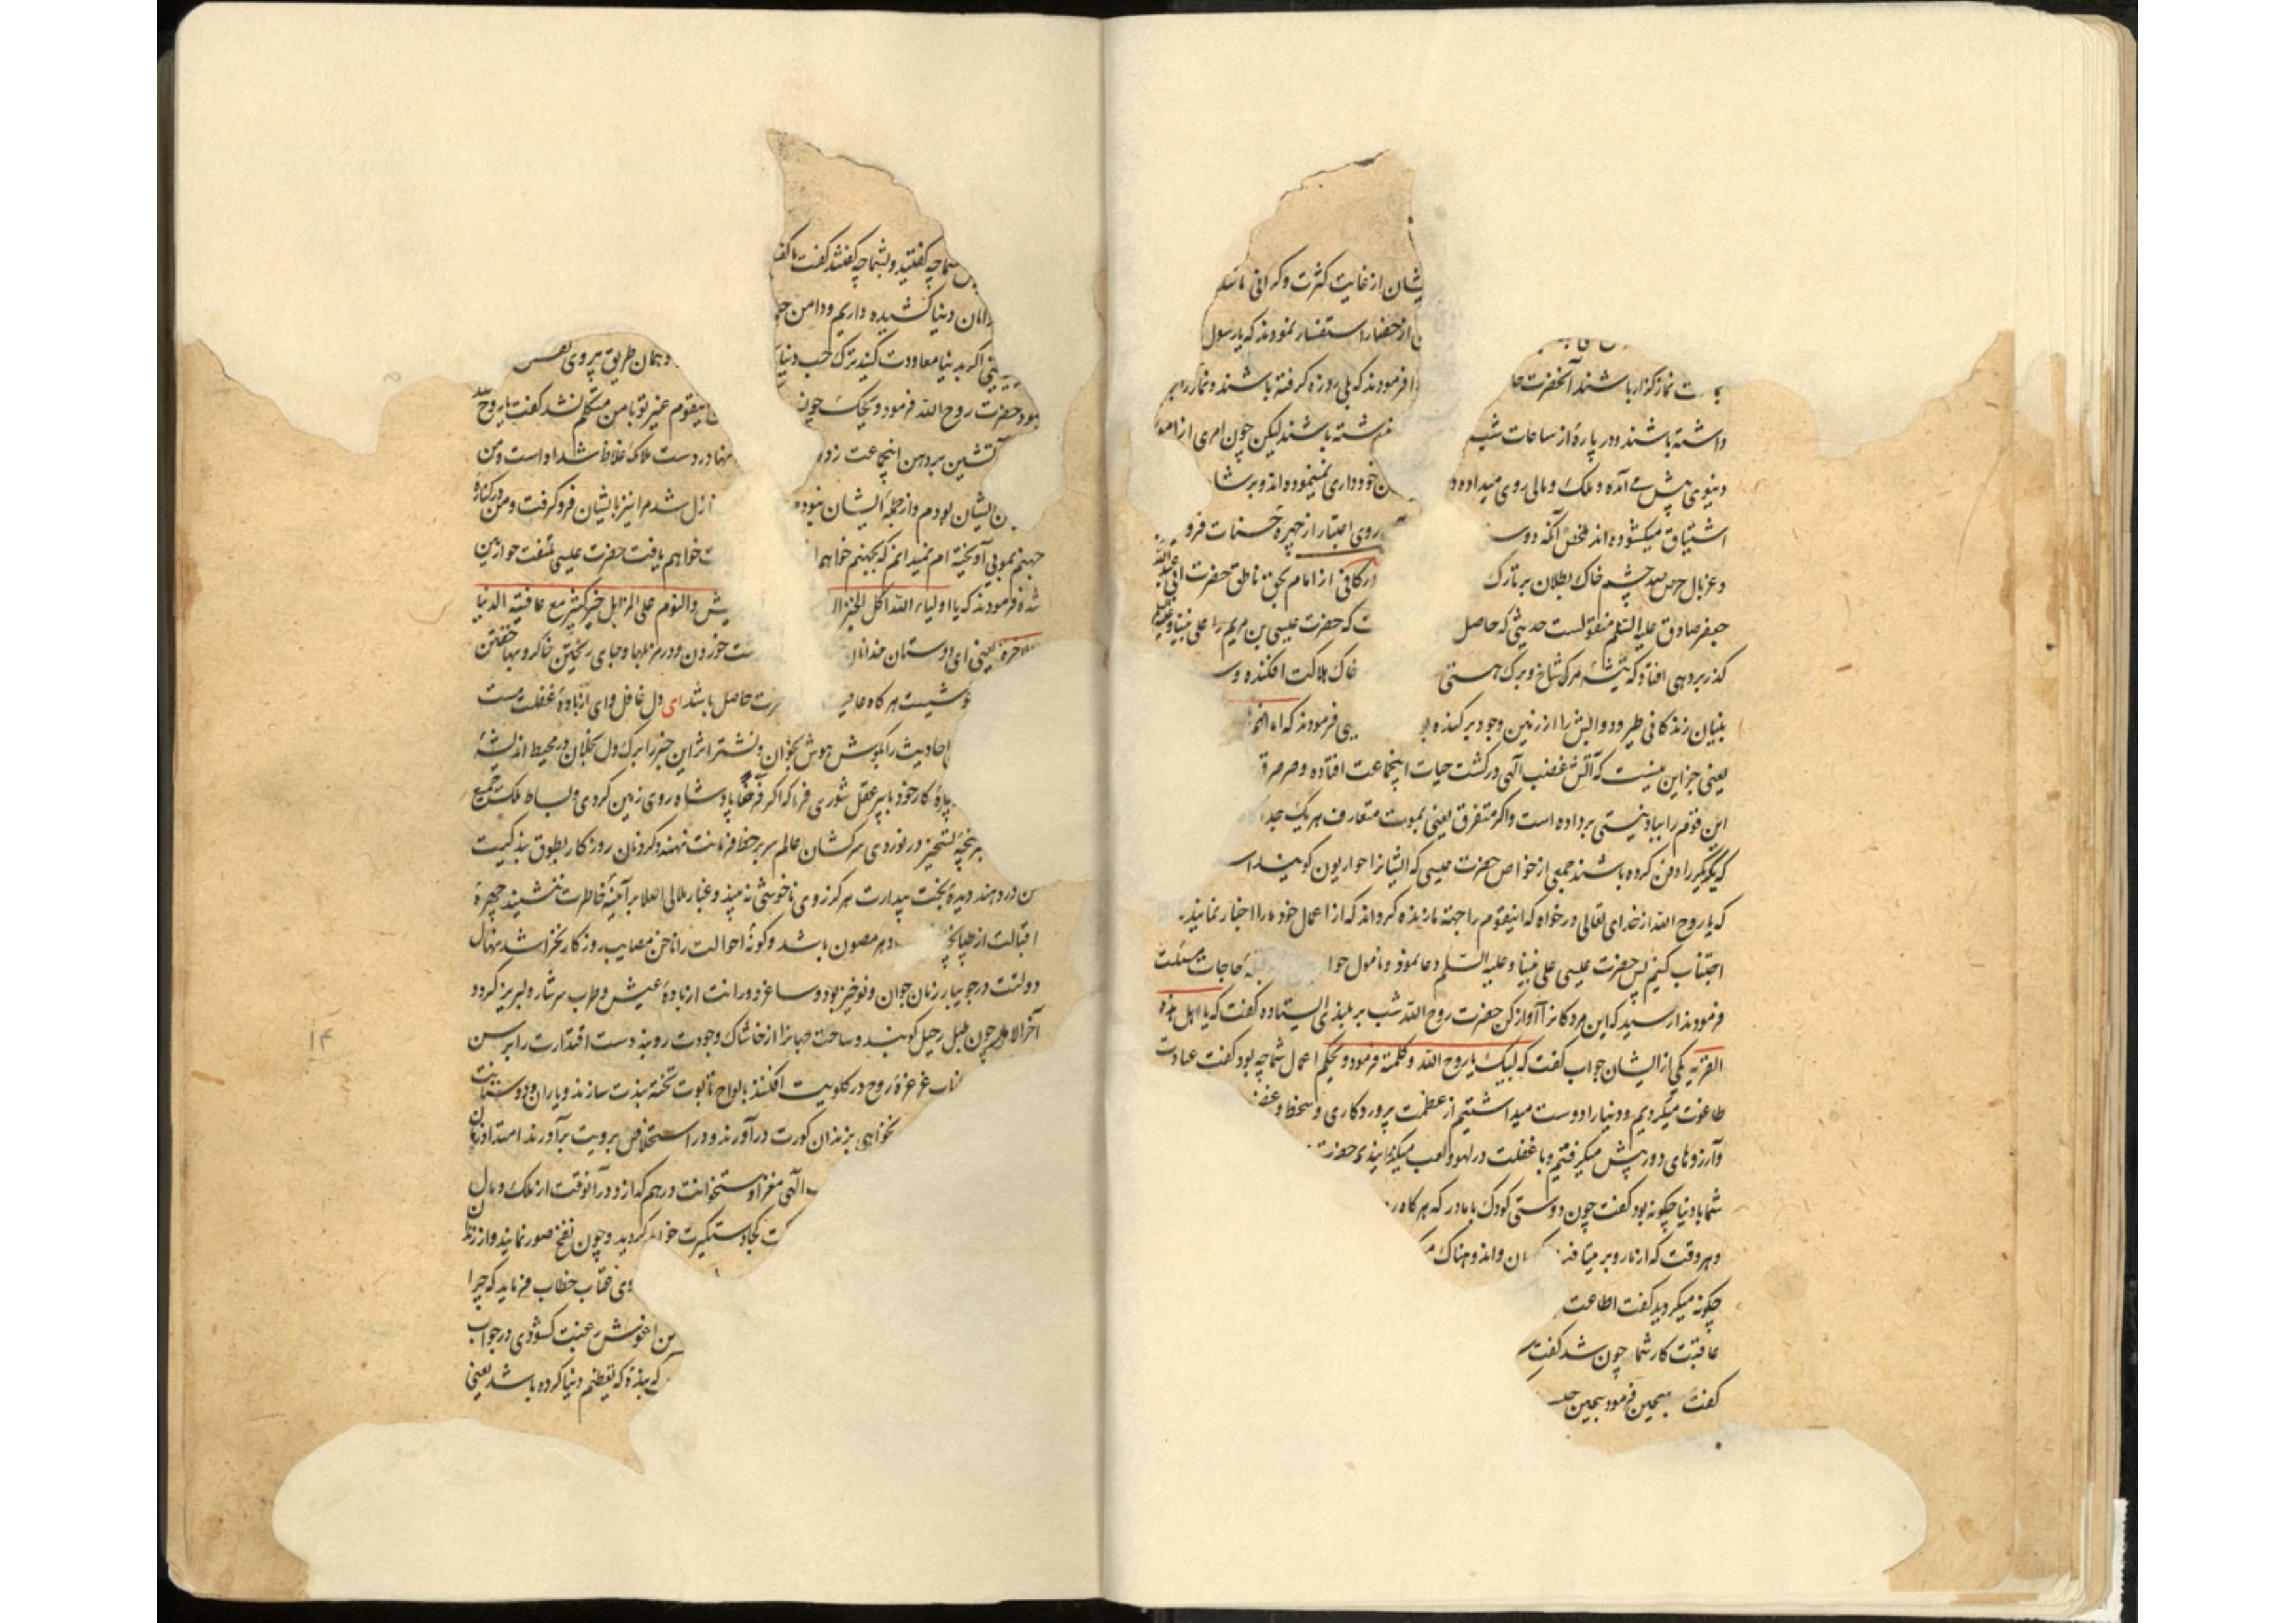 یشان از غایت کثرت و گرانی
از حضار استفسار نمودند که یا رسول
ت نماز گزار باشند آنحضرت
فرمودند که بلی روزه گرفته باشند و نماز را
داشته باشند و در پارهٔ از ساعات شب
باشند لیکن چون امری از امو
دنیوی پیش می آمده و ملک و مالی روی میداده
خودداری نمینموده اند و بر
اشتیاق میکشوده اند ملخص آنکه دوس
روی اعتبار از چهرهٔ حسنات فرو
و غربال حرص چشم خاک بطلان بر تارک
در کافی از امام بحق ناطق حضرت ابی عبدالله
جعفر صادق علیه السلم منقولست حدیثی که حاصل
ت که حضرت عیسی بن مریم را علی نبینا و علیه
گذر بر دهی افتاد که تیشهٔ مرک شاخ و برک هستی
خاک هلاکت افکنده و
بنیان زندگانی طیور و دوابش را از زمین وجود بر کنده
فرمودند که اما انهم
یعنی جز این نیست که آتش غضب الهی در کشت حیات اینجماعت افتاده و صرصر
این قوم را بباد نیستی برداده است و اگر متفرق یعنی بموت متعارف هر یک جدا
که یکدیگر را دفن کرده باشند جمعی از خواص حضرت عیسی که ایشانرا حواریون گویند
که یا روح الله از خدای تعالی درخواه که اینقوم را جهة ما زنده گرداند که از اعمال خود ما را اخبار نمایند
اجتناب کنیم پس حضرت عیسی علی نبینا و علیه السلم دعا نمود و نامول حاجات مسئلت
فرمودند ندا رسید که این مردگانرا آواز کن حضرت روح الله شب بر بلندئی ایستاده گفت که یا اهل هذه
القریه یکی از ایشان جواب گفت که لبیک یا روح الله و کلمته فرمود ویحکم اعمال شما چه بود گفت عبادت
طاغوت میکردیم و دنیا را دوست میداشتیم از عظمت پروردگاری و سخط و غضب
و آرزوهای دور پیش میگرفتیم و با غفلت در لهو و لعب میگذرانیدیم حضرت
شما با دنیا چگونه بود گفت چون دوستی کودک با مادر که هر گاه
و هر وقت که از ما رو بر میتافت وان و اندوهناک
چگونه میکردید گفت اطاعت
عاقبت کار شما چون شد گفت
گفت سجین فرمود سجین
شما چه گفتند و بشما چه گفتند گفت ما گف
دامان دنیا کشیده داریم و دامن
و همان طریق پیروی نفس
اگر بدنیا معاودت کنید ترک حب دنیا
اینقوم غیر تو با من متکلم نشد گفت یا روح
حضرت روح الله فرمود ویحک چون
در دست ملائک غلاظ شداد است و من
آتشین بر دهن اینجماعت زده
نازل شد مرا نیز با ایشان فرو گرفت و من در کنارهٔ
ایشان بودم و از جملهٔ ایشان نبودم
جهنم بموئی آویخته ام نمیدانم که بجهنم خواهم
خواهم یافت حضرت عیسی ملتفت حواریین
شده فرمودند که یا اولیاء الله اکل الخبز ال
یش و النوم علی المزابل خیر کثیر مع عافیة الدنیا
و الاخرة یعنی ای دوستان خدا نان
خوردن و در مزبلها و جای ریختن خاکروبها خفتن
هر گاه عافیت
رت حاصل باشد ای دل غافل و ای از بادهٔ غفلت مست
احادیث را بگوش هوش بخوان و نشتر اثر این خبر را برک دل بخلان در محیط اندیشهٔ
چارهٔ کار خود با پیر عقل شوری فرما که اگر فرضا پادشاه روی زمین گردی و بساط ملکت جمیع
سرپنجهٔ تسخیر در نوردی سرکشان عالم سر بر خط فرمانت نهند و گردنان روزگار بطوق بندگیت
در دهند دیدهٔ بخت بیدارت هرگز روی ناخوشی نه بیند و غبار ملالی اصلا بر آینهٔ خاطرت ننشیند چهرهٔ
اقبالت از طپانچهٔ دهر مصون باشد و گونهٔ احوالت را ناخن مصایب روزگار نخراشد نهال
دولتت در جویبار زمان جوان و نوخیز بود و ساغر دورانت از بادهٔ عیش و طرب سرشار و لبریز گردد
آخر الامر چون طبل رحیل کوبند و ساحت جهانرا از خاشاک وجودت روبند دست اقتدارت را بر پس
طناب غرغرهٔ روح در گلویت افکنند بالواح تابوت تخته بندت سازند و یاران و دوستانت
نخواهی بزندان گورت درآورند و در استخلاص برویت برآورند امتداد زمان
الهی مغز و استخوانت در هم گدازد در آنوقت از ملک و مال
کجا دستگیرت خواهد گردید و چون نفخ صور نمایند و از زندان
روی عتاب خطاب فرماید که چرا
آغوش رغبت کشودی در جواب
که بندهٔ که تعظیم دنیا کرده باشد یعنی
۱۴